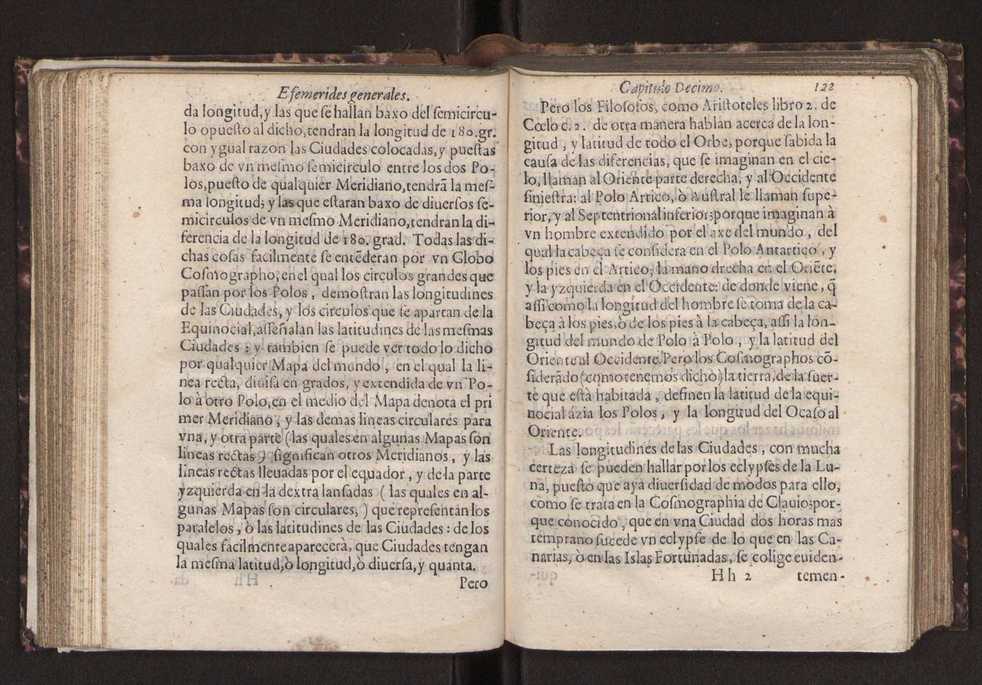 Efemerides generales.
da longitud, y las que se hallan baxo del semicircu-
lo opuesto al dicho, tendran la longitud de 180. gr.
con ygual razon las Ciudades colocadas, y puestas
baxo de vn mesmo semicirculo entre los dos Po-
los, puesto de qualquier Meridiano, tendrã la mes-
ma longitud; y las que estaran baxo de diuersos se-
micirculos de vn mesmo Meridiano, tendran la di-
ferencia de la longitud de 180. grad. Todas las di-
chas cosas facilmente se entẽderan por vn Globo
Cosmographo, en el qual los circulos grandes que
passan por los Polos, demostran las longitudines
de las Ciudades, y los circulos que se apartan de la
Equinocial, asseñalan las latitudines de las mesmas
Ciudades: y tambien se puede ver todo lo dicho
por qualquier Mapa del mundo, en el qual la li-
nea recta, diuisa en grados, y extendida de vn Po-
lo à otro Polo, en el medio del Mapa denota el pri
mer Meridiano, y las demas lineas circulares para
vna, y otra parte (las quales en algunas Mapas son
lineas rectas) significan otros Meridianos, y las
lineas rectas lleuadas por el equador, y de la parte
yzquierda en la dextra lansadas (las quales en al-
gunas Mapas son circulares,) que representan los
paralelos, ò las latitudines de las Ciudades: de los
quales facilmente aparecerà, que Ciudades tengan
la mesma latitud, ò longitud, ò diuersa, y quanta.
Pero
Capitulo Decimo. 122
Pero los Filosofos, como Aristoteles libro 2. de
Cœlo c. 2. de otra manera hablan acerca de la lon-
gitud, y latitud de todo el Orbe, porque sabida la
causa de las diferencias, que se imaginan en el cie-
lo, llaman al Oriente parte derecha, y al Occidente
siniestra: al Polo Artico, ò Austral le llaman supe-
rior, y al Septentrional inferior; porque imaginan à
vn hombre extendido por el axe del mundo, del
qual la cabeça se considera en el Polo Antartico, y
los pies en el Artico; la mano drecha en el Oriẽte,
y la yzquierda en el Occidente: de donde viene, q̃
assi como la longitud del hombre se toma de la ca-
beça à los pies, ò de los pies à la cabeça, assi la lon-
gitud del mundo de Polo à Polo, y la latitud del
Oriente al Occidente. Pero los Cosmographos cõ-
siderãdo (como tenemos dicho) la tierra, de la suer-
te que està habitada, definen la latitud de la equi-
nocial àzia los Polos, y la longitud del Ocaso al
Oriente.
Las longitudines de las Ciudades, con mucha
certeza se pueden hallar por los eclypses de la Lu-
na, puesto que aya diuersidad de modos para ello,
como se trata en la Cosmographia de Clauio; por-
que conocido, que en vna Ciudad dos horas mas
temprano sucede vn eclypse de lo que en las Ca-
narias, ò en las Islas Fortunadas, se colige euiden-
Hh 2 temen-